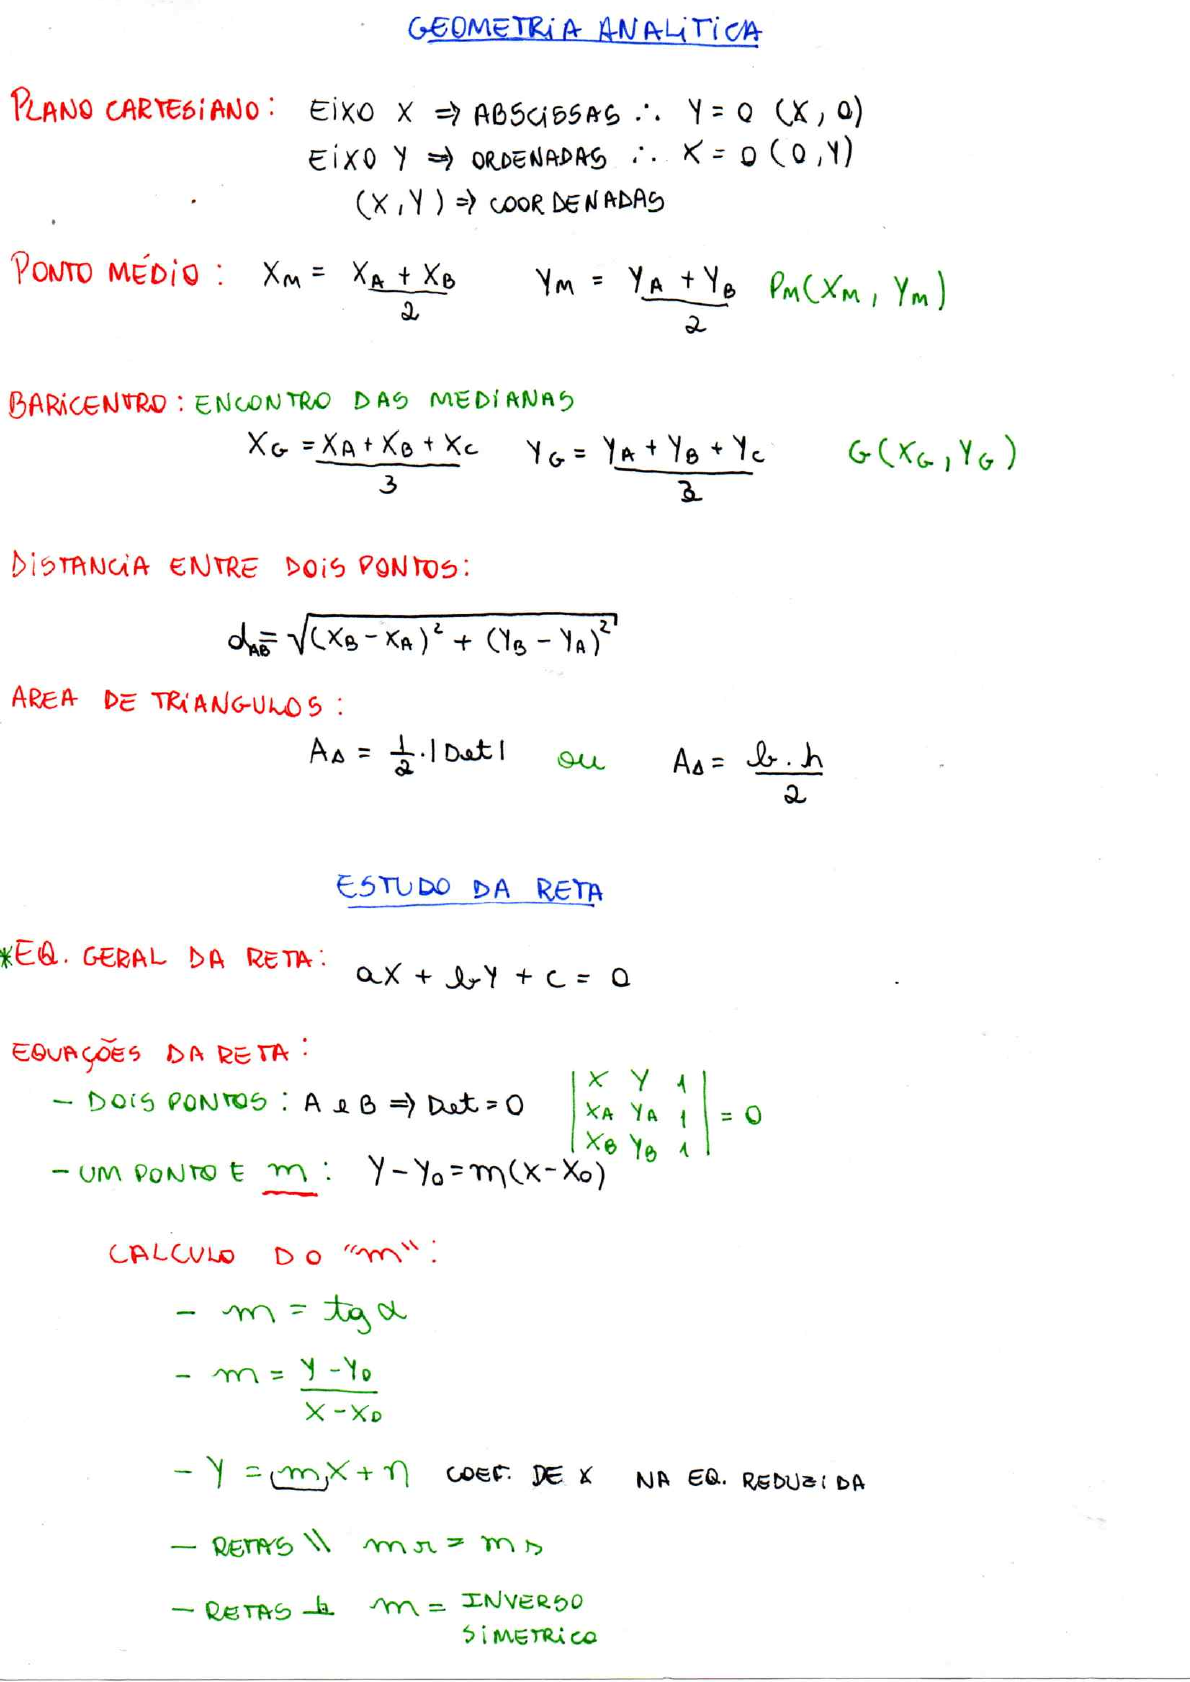 GEOMETRIA ANALITICA
PLANO CARTESIANO: EIXO X ⇒ ABSCISSAS ∴ Y = 0 (X, 0)
EIXO Y ⇒ ORDENADAS ∴ X = 0 (0, Y)
(X, Y) ⇒ COORDENADAS
PONTO MÉDIO: X_M = (X_A + X_B)/2 Y_M = (Y_A + Y_B)/2 P_M(X_M, Y_M)
BARICENTRO: ENCONTRO DAS MEDIANAS
X_G = (X_A + X_B + X_C)/3 Y_G = (Y_A + Y_B + Y_C)/3 G(X_G, Y_G)
DISTANCIA ENTRE DOIS PONTOS:
d_AB = √((X_B - X_A)² + (Y_B - Y_A)²)
AREA DE TRIANGULOS:
A_Δ = 1/2 · |Det| ou A_Δ = (b . h)/2
ESTUDO DA RETA
*EQ. GERAL DA RETA: aX + bY + c = 0
EQUAÇÕES DA RETA:
- DOIS PONTOS: A e B ⇒ Det = 0 |X Y 1|
|X_A Y_A 1| = 0
|X_B Y_B 1|
- UM PONTO E m: Y - Y_0 = m(X - X_0)
CALCULO DO "m":
- m = tg α
- m = (Y - Y_0)/(X - X_0)
- Y = mX + n COEF. DE X NA EQ. REDUZIDA
- RETAS \\ m_r = m_s
- RETAS ⊥ m = INVERSO
SIMETRICO